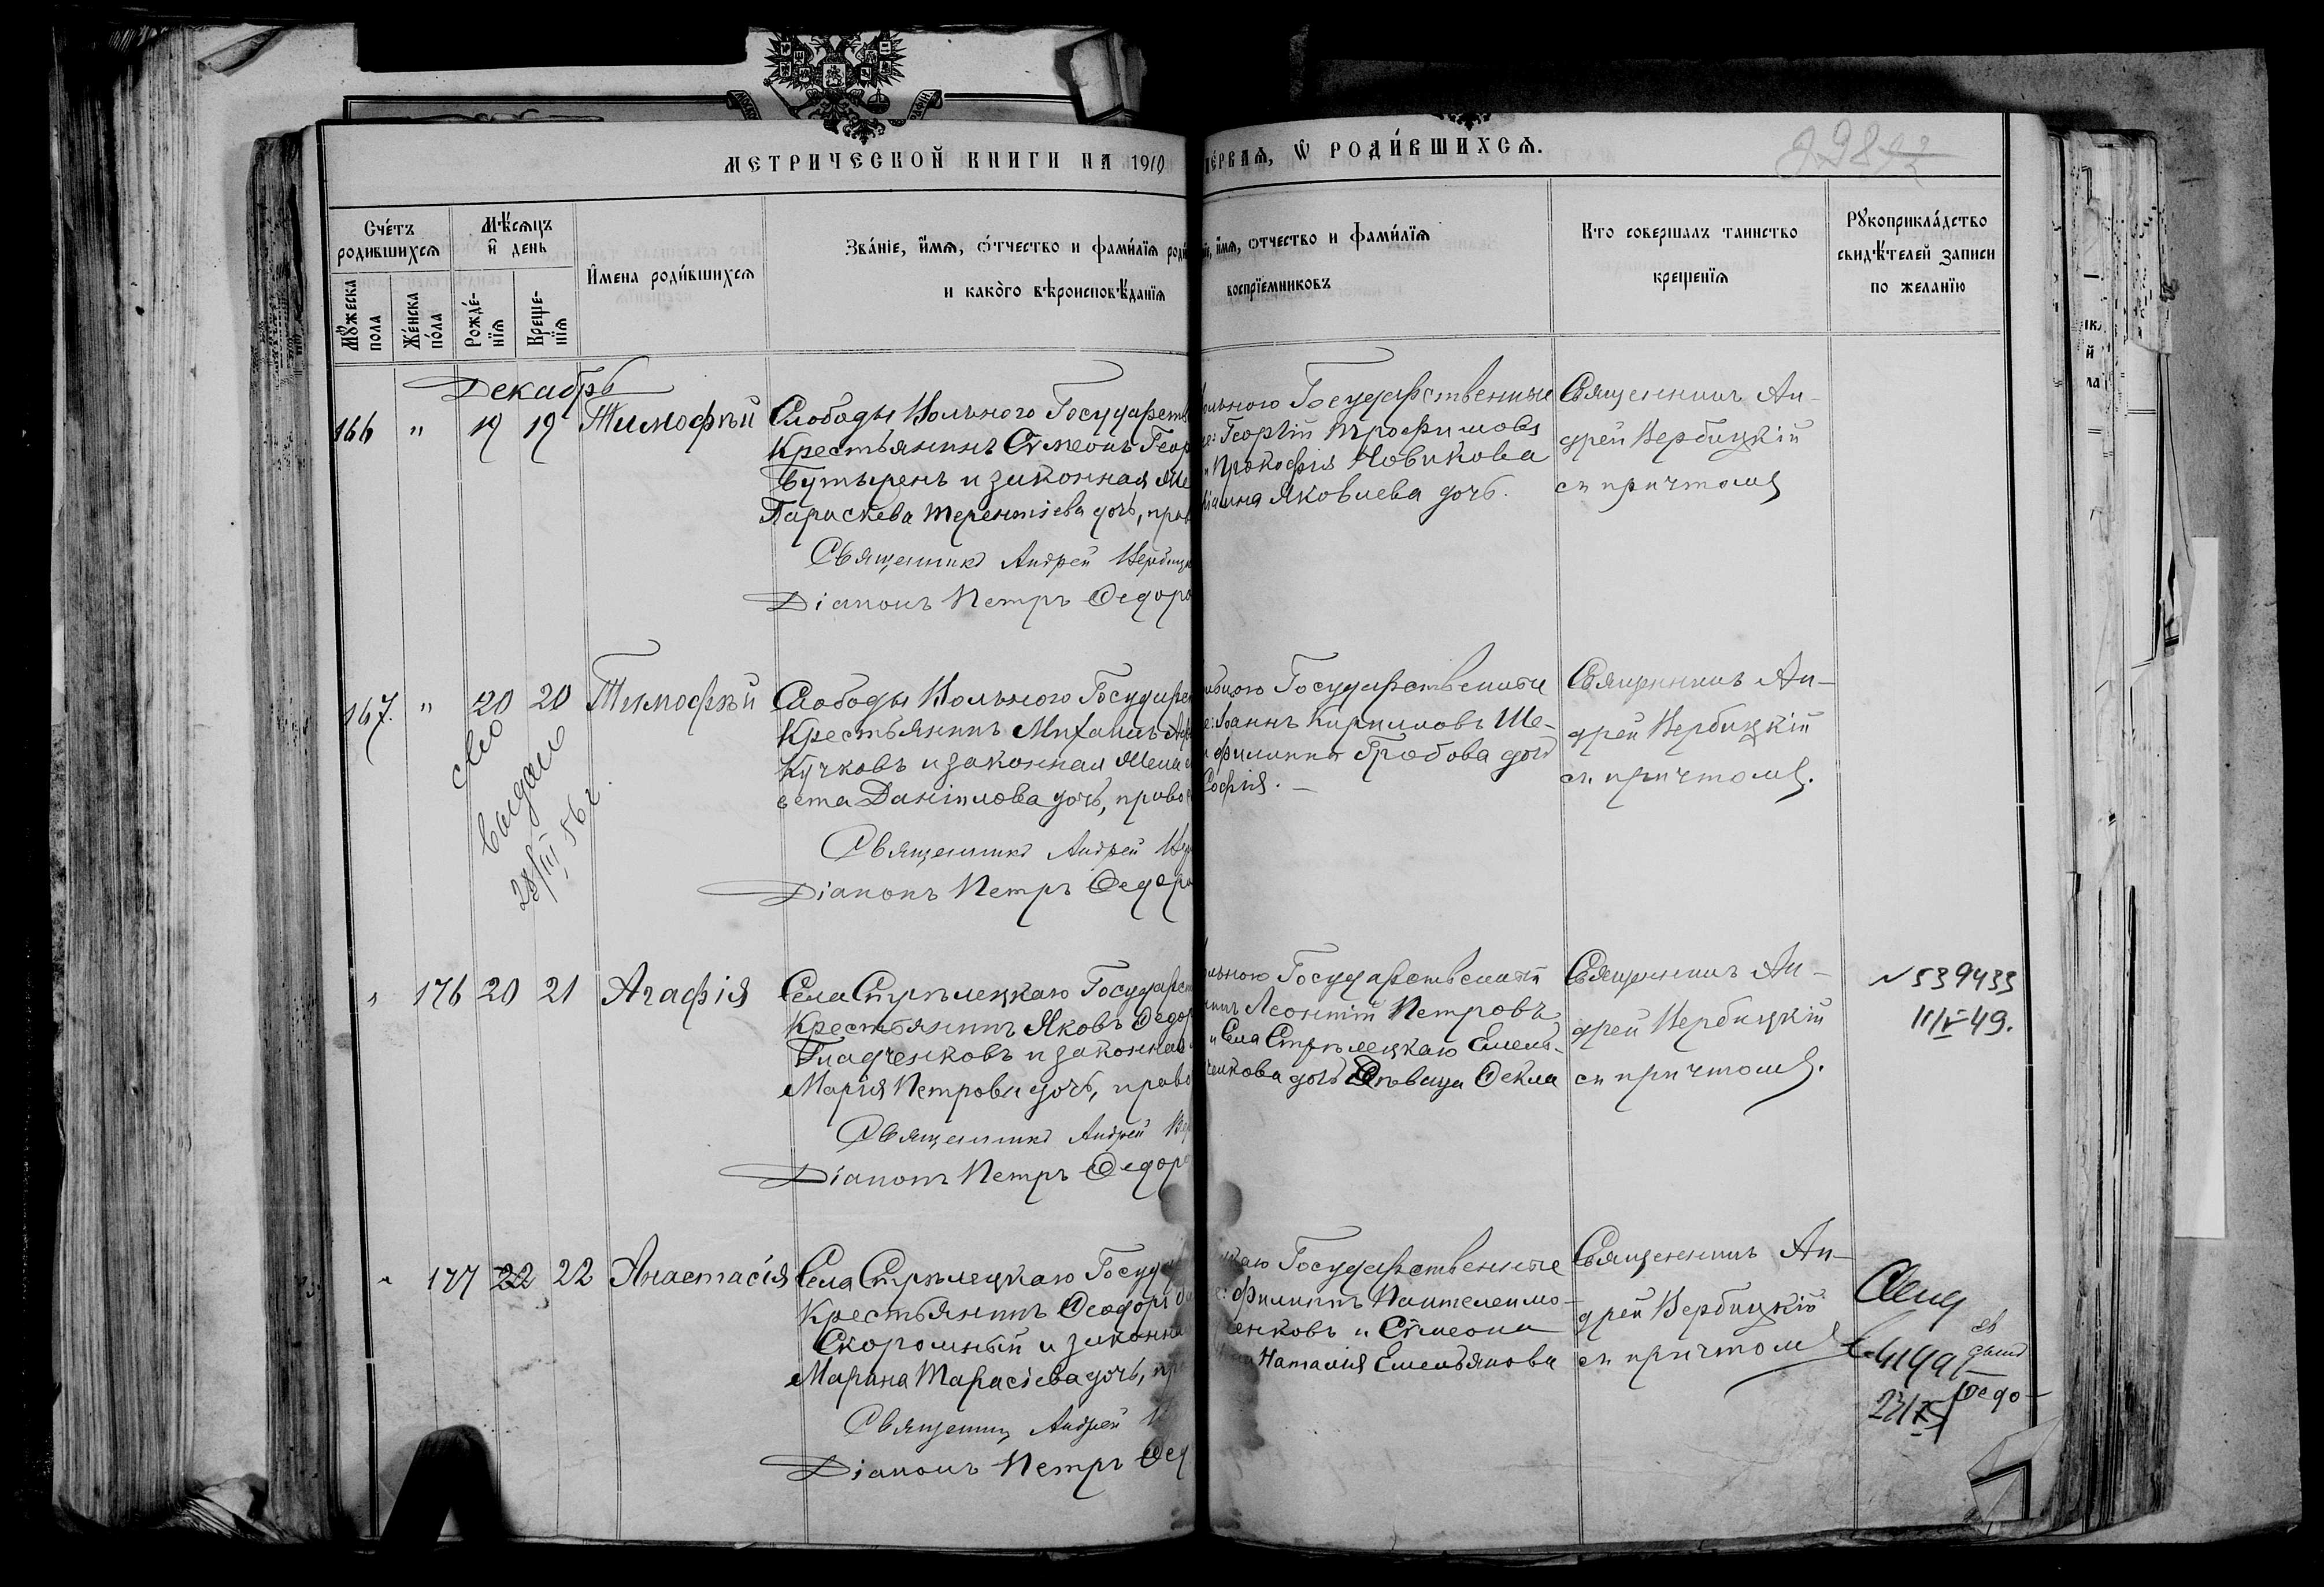 МЕТРИЧЕСКОЙ КНИГИ НА 1910
ПЕРВАЯ, Ѡ РОДИ́ВШИХСЯ.
Сче́тъ родившихся
Мѣсяцъ и день
Имена роди́вшихся
Зва́нїе, и҆́мя, ѻ҆́тчество и фами́лїя роди
и како́го вѣроисповѣ́данїя
и҆́мя, ѻтчество и фами́лїя
воспрїемниковъ
Кто совершалъ таинство
крещенїя
Рꙋкоприкла́дство
свидѣ́телей записи
по желанїю
Мꙋжеска пола
Же́нска по́ла
Рожде́-нїя
Креще-нїя
Декабрь
166 " 19 19 Тимофѣй
Слободы Вольного Государств
Крестьянинъ Сѵмеонъ Геор
Бутыренъ и законная же
Параскева Терентіева дочь, прав
Священникъ Андрей Вербицк
Діаконъ Петръ Ѳедоро
ольного Государственные
Георгій Трофимовъ
и Прокофія Новикова
Яковлева дочь.
Священникъ Ан-
дрей Вербицкій
съ причтомъ
167. " 20 20 Тимофѣй
Слободы Вольного Государс
Крестьянинъ Михаилъ
Кучковъ и законная жена
вета Даніилова дочь, право
Священникъ Андрей Вер
Діаконъ Петръ Ѳедоро
Государственные
Іоаннъ Кирилловъ Ше-
Филиппа Гробова дочь
Софія. —
Священникъ Ан-
дрей Вербицкій
съ причтомъ.
выдано
28/III 56 г.
" 176 20 21 Агафія
Села Стрѣлецкаго Государст
Крестьянинъ Яковъ Ѳедор
Гладченковъ и законная
Марія Петрова дочь, право
Священникъ Андрей Вер
Діаконъ Петръ Ѳедоро
ольного Государственный
Леонтій Петровъ
и Села Стрѣлецкаго Емель-
ченкова дочь Дѣвица Ѳекла
Священникъ Ан-
дрей Вербицкій
съ причтомъ.
N 539433
11/V-49.
" 177 22 22 Анастасія
Села Стрѣлецкаго Государ
Крестьянинъ Ѳеодоръ
Скоромный и законна
Марина Тарасіева дочь, пр
Священник Андрей В
Діаконъ Петръ Ѳед
каго Государственные
Филиппъ Пантелеимо-
енковъ и Сѵмеона
Наталія Емельянова
Священникъ Ан-
дрей Вербицкій
съ причтомъ